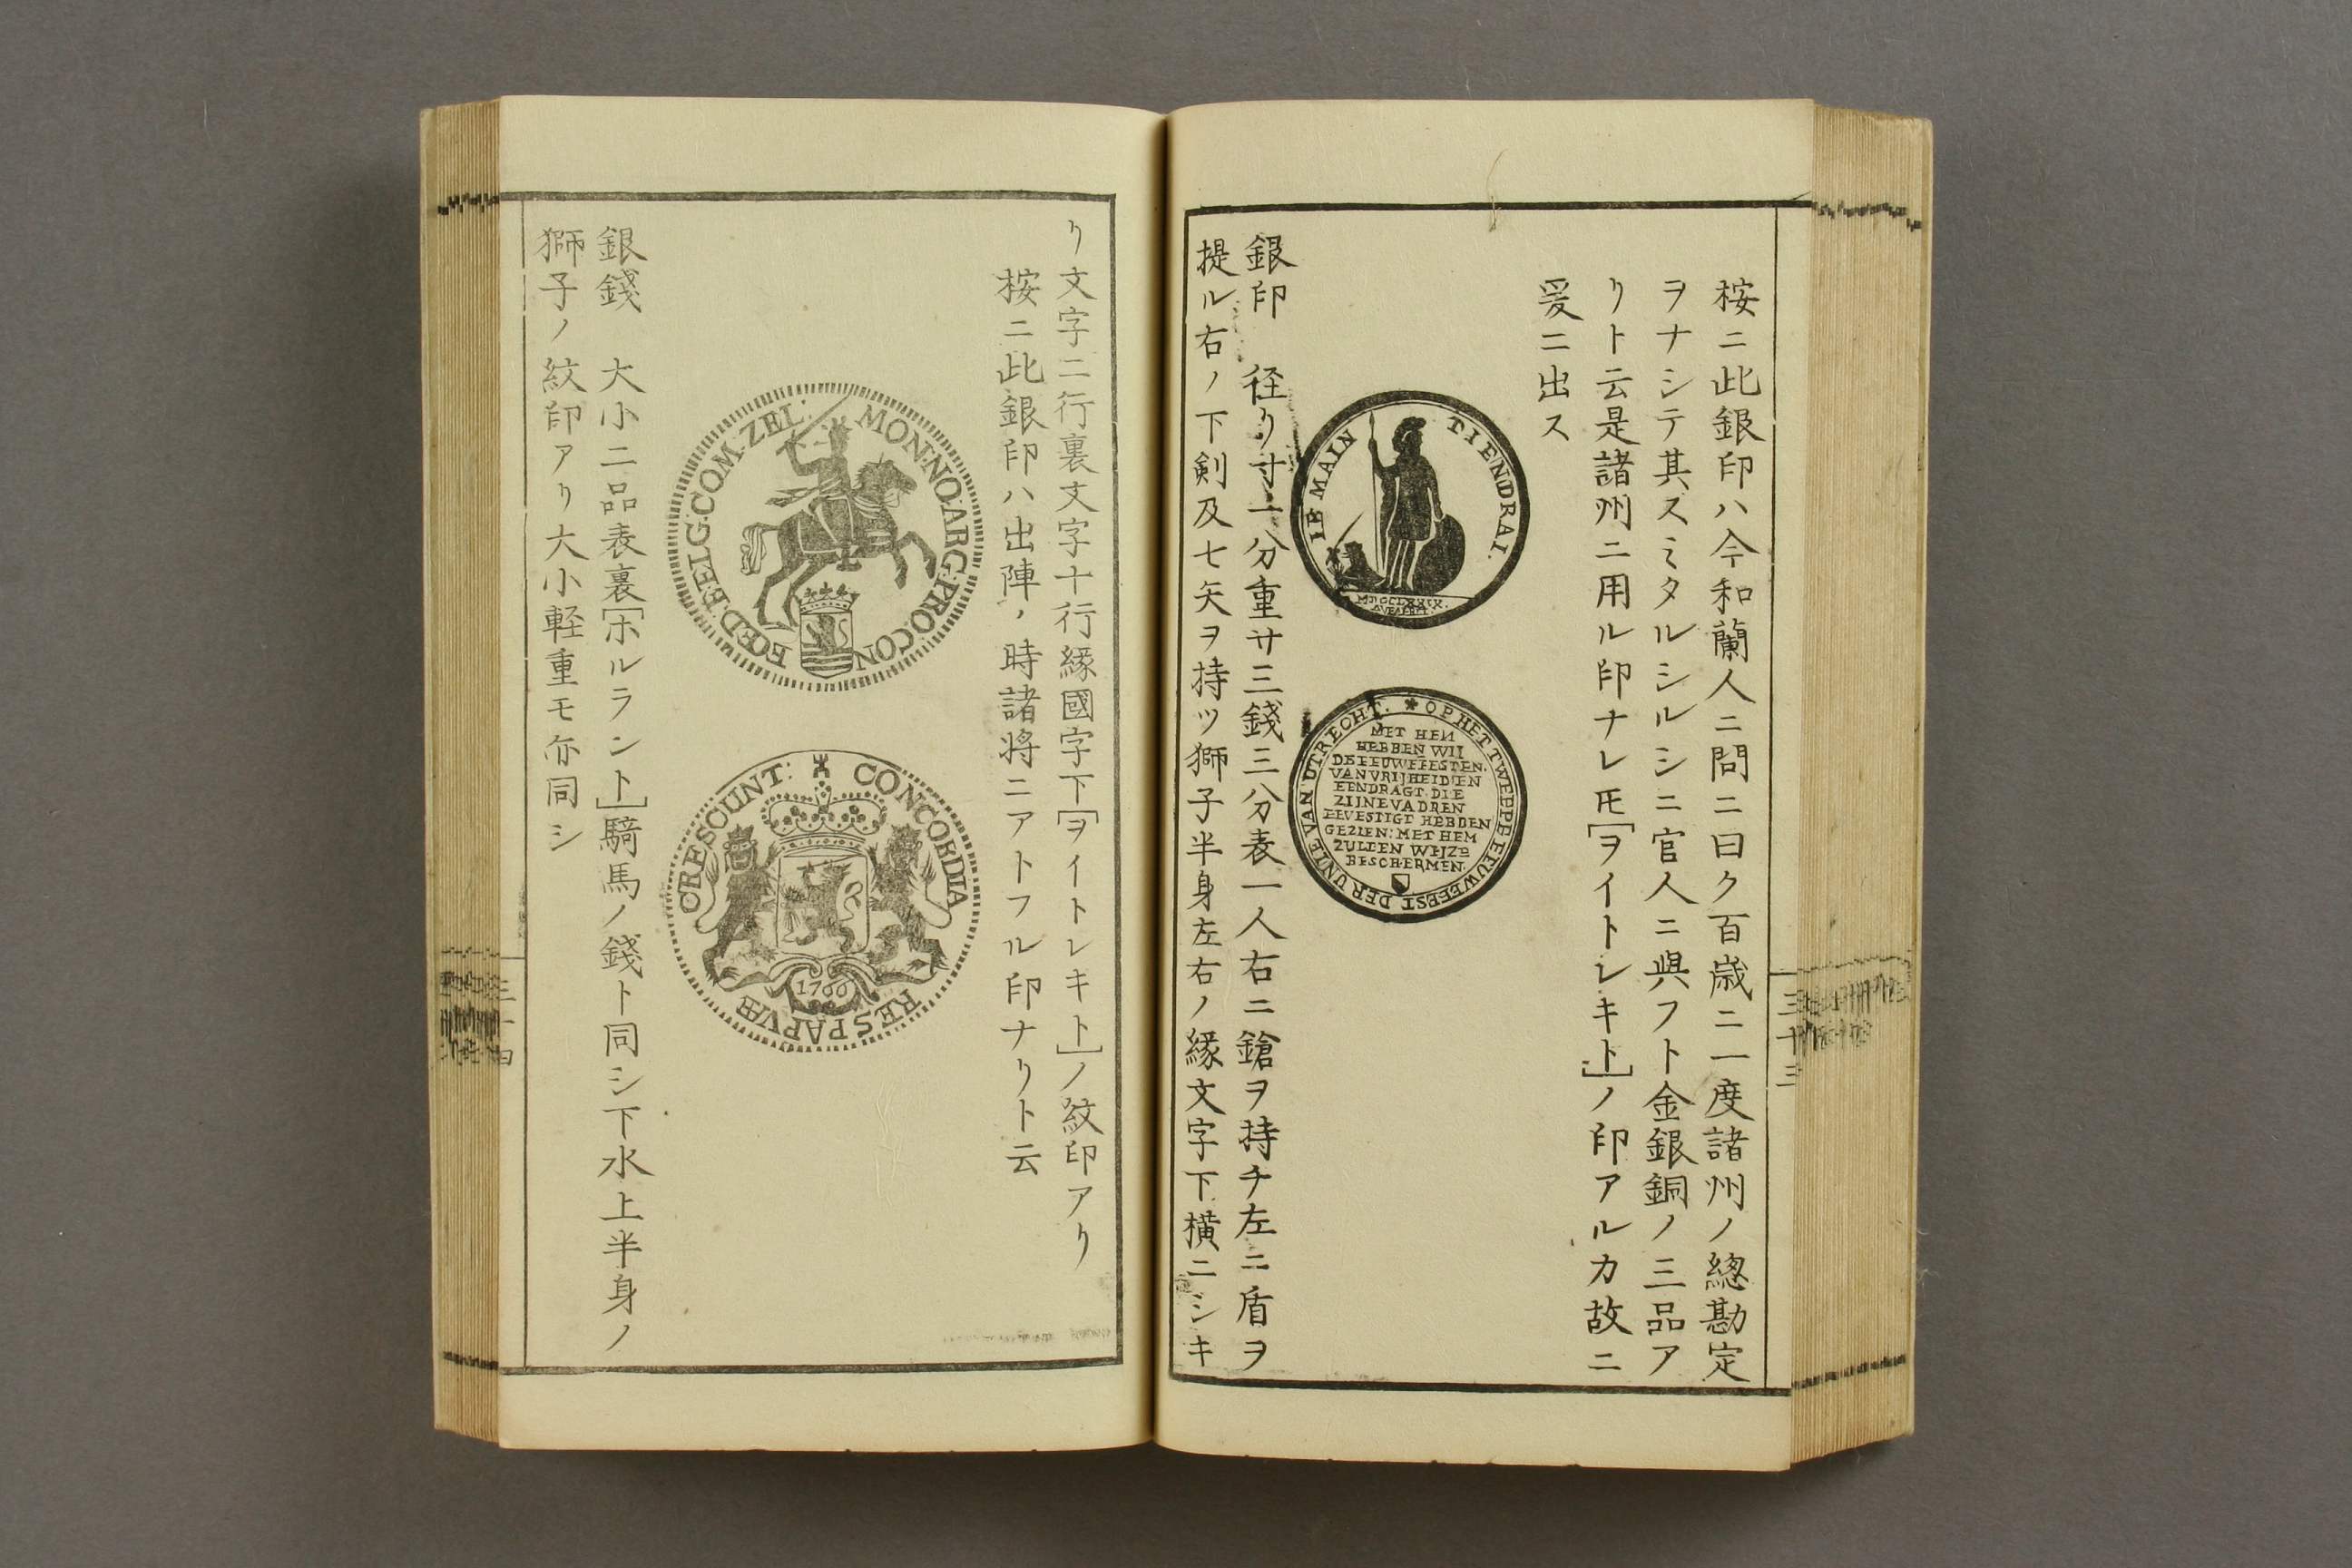 按ニ此銀印ハ今和蘭人ニ問ニ曰ク百歳ニ一度諸州ノ總勘定
ヲナシテ其スミタルシルシニ官人ニ與フト金銀銅ノ三品ア
リト云是諸州ニ用ル印ナレ㡪[ヲイトレキト]ノ印アルカ故ニ
爰ニ出ス
IE MAIN TIENDRAI.
MDCCLXXIX.
OP HET TWEDDE EEUWEFEEST DER UNIE VAN UTRECHT.
MET HEM
HEBBEN WIJ
DEEEUWFEESTEN
VAN VRIJHEID EN
EENDRAGT DIE
ZIJNE VADREN
BEVESTIGT HEBBEN
GEZIEN: MET HEM
ZULLEN WIJZE
BESCHERMEN.
銀印　径リ寸一分重廿三錢三分表一人右ニ鎗ヲ持チ左ニ盾ヲ
提ル右ノ下剣及七矢ヲ持ツ獅子半身左右ノ縁文字下横ニシキ
三十三
リ文字二行裏文字十行縁國字下[ヲイトレキト]ノ紋印アリ
按ニ此銀印ハ出陣ノ時諸将ニアトフル印ナリト云
MON:NO:ARG:PRO:CON
FOED:BELG:COM:ZEL:
CONCORDIA
RES PARVÆ
CRESCUNT:
1766
銀錢　大小二品表裏[ホルラント]騎馬ノ錢ト同シ下水上半身ノ
獅子ノ紋印アリ大小軽重モ亦同シ
三十四